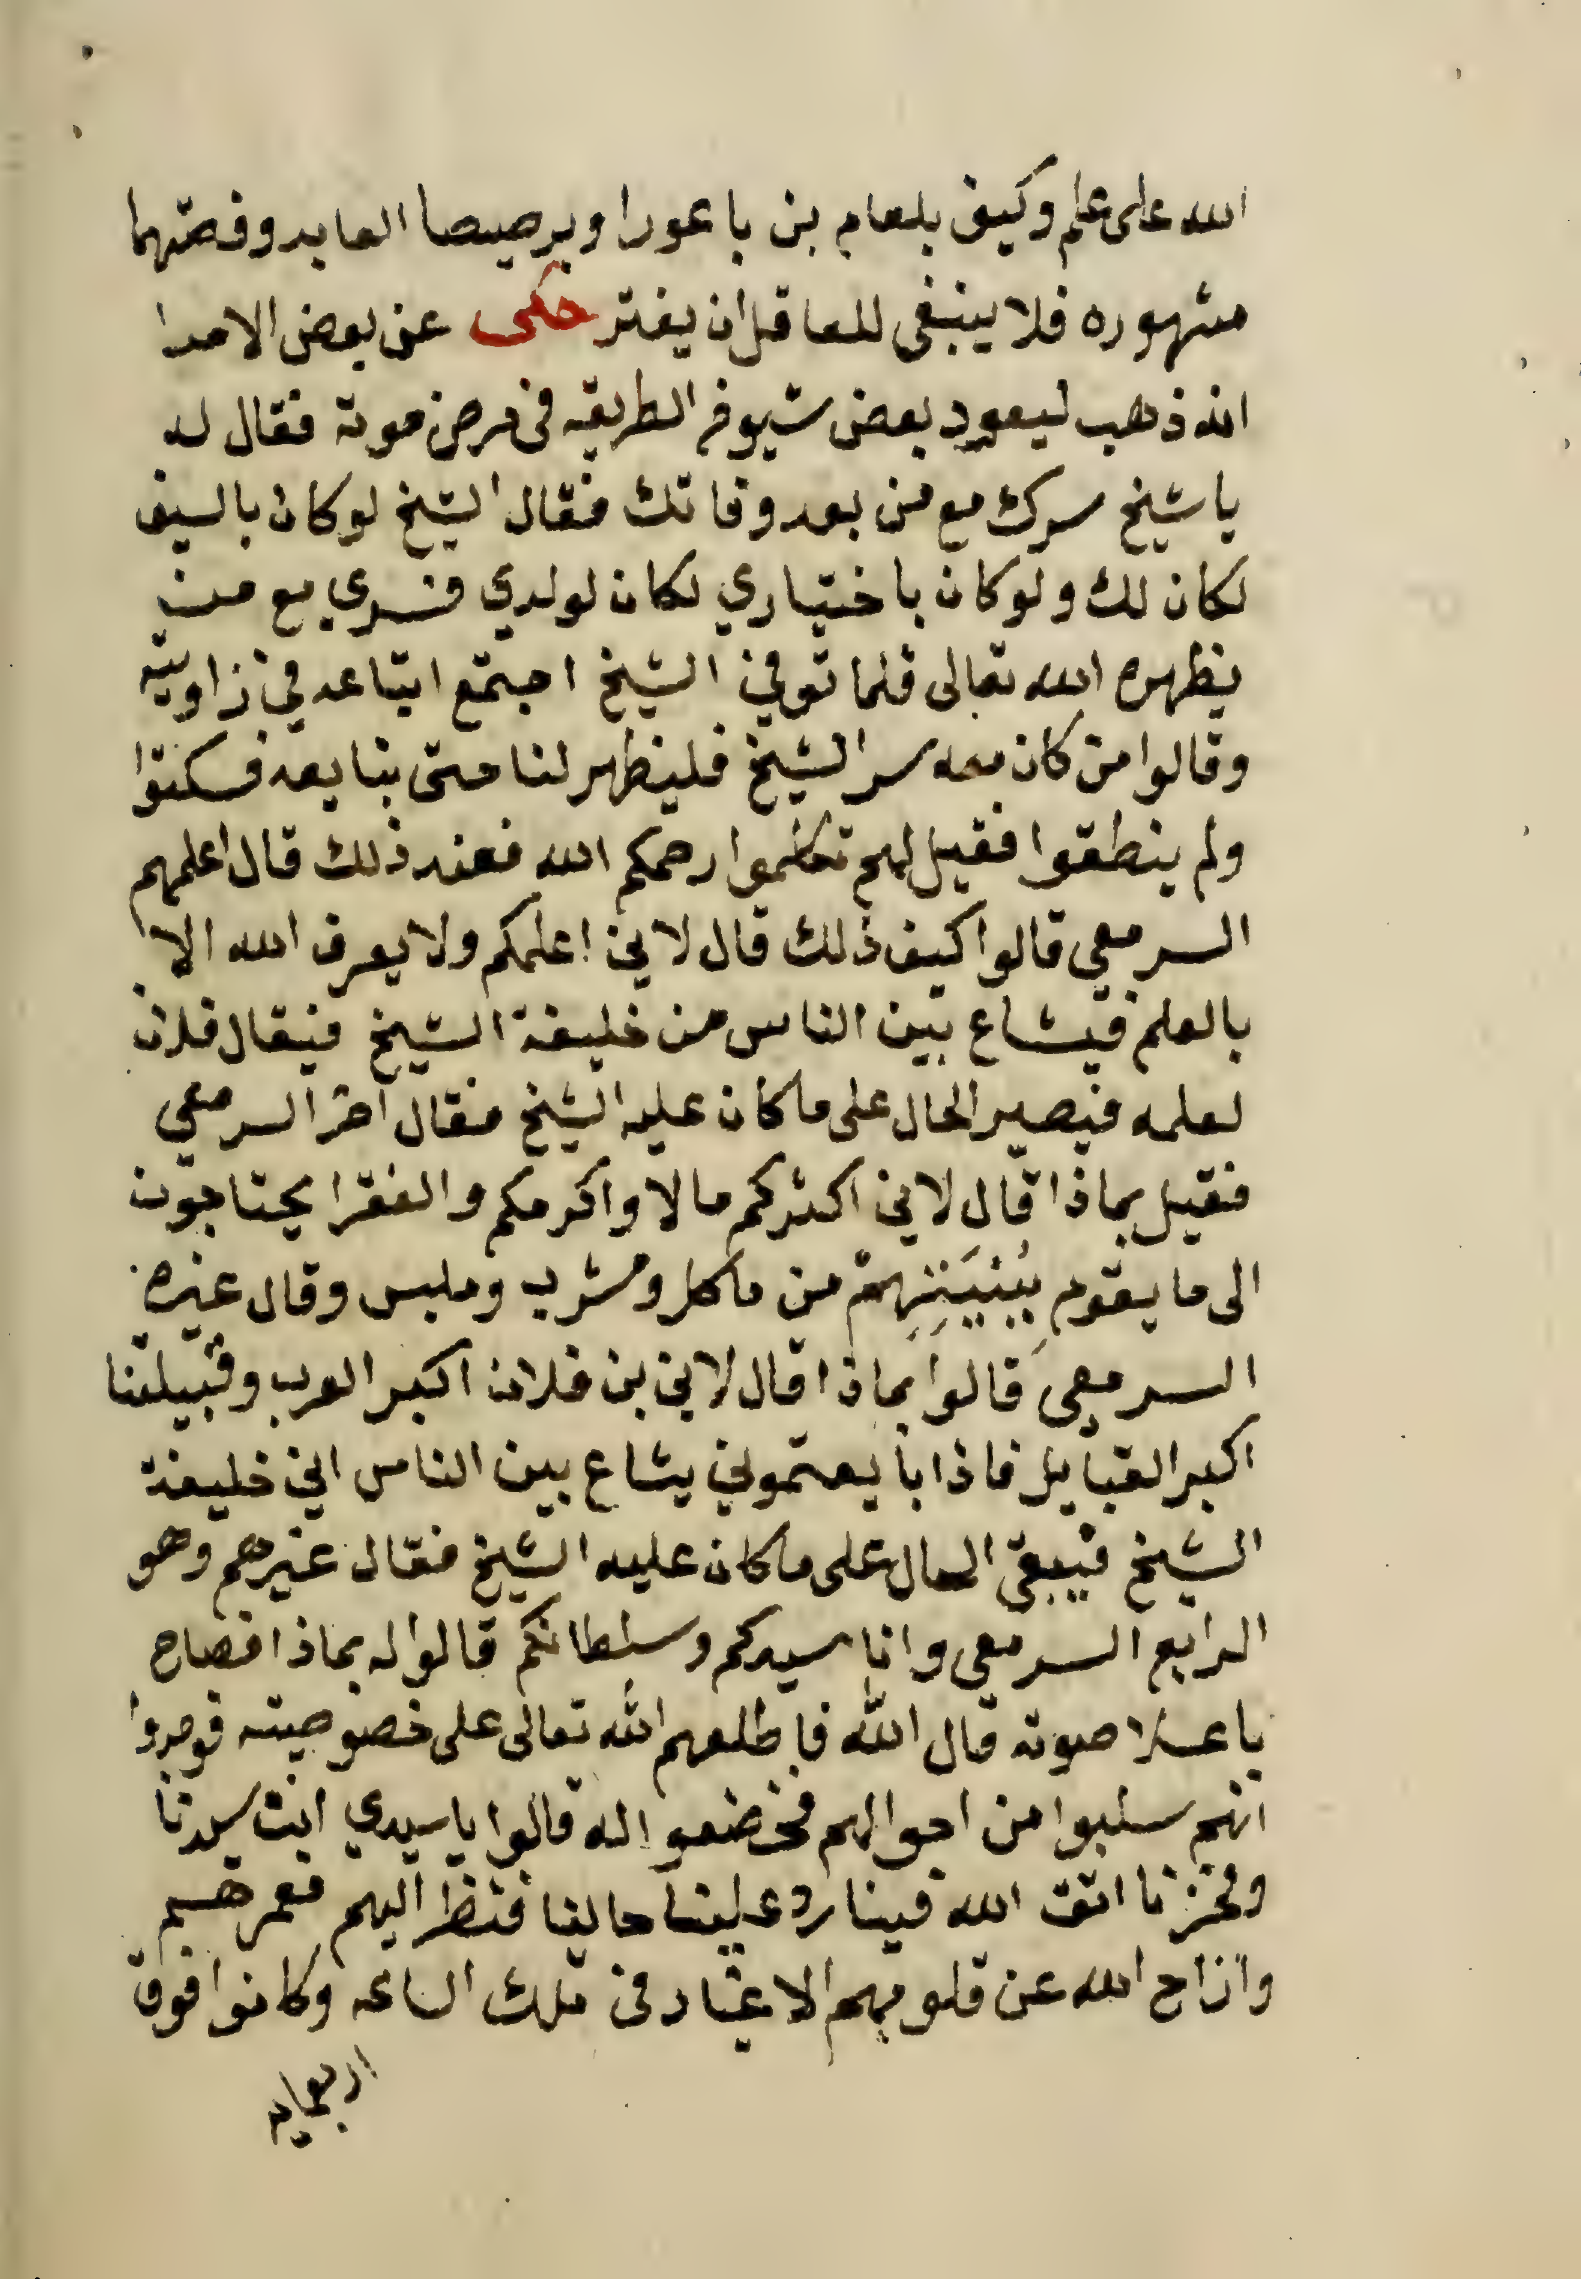 الله على علم وكيف بلعام بن باعورا وبرصيصا العابد وقصتهما
مشهوره فلا ينبغي للعاقل أن يغتر حكى عن بعض الامرا
انه ذهب ليعود بعض شيوخ الطريقه في مرض موته فقال له
يا شيخ سرك مع من بعد وفاتك فقال الشيخ لو كان بالسيف
لكان لك ولو كان باختياري لكان لولدي فسري مع من
يظهره الله تعالى فلما توفي الشيخ اجتمع اتباعه في زاويته
وقالوا من كان معه سر الشيخ فليظهر لنا حتى نبايعه فسكتوا
ولم ينطقوا فقيل لهم تكلموا رحمكم الله فعند ذلك قال اعلمهم
السر معي قالوا كيف ذلك قال لاني اعلمكم ولا يعرف الله الا
بالعلم فيشاع بين الناس من خليفة الشيخ فيقال فلان
لعلمه فيصير الحال على ما كان عليه الشيخ فقال آخر السر معي
فقيل بماذا قال لاني اكثركم مالا واكرمكم والفقرا يحتاجون
الى ما يقوم من ماكل ومشرب وملبس وقال غيره
السر معي قالوا بماذا قال لاني بن فلان اكبر العرب وقبيلتنا
اكبر القبايل فاذا بايعتموني يشاع بين الناس اني خليفة
الشيخ فيبقى الحال على ما كان عليه الشيخ فقال غيرهم وهو
الرابع السر معي وانا سيدكم وسلطانكم قالوا له بماذا فصاح
باعلا صوته قال الله فاطلعهم الله تعالى على خصوصيته فوجدوا
انهم سلبوا من احوالهم فخضعوا له قالوا يا سيدي انت سيدنا
وفخرنا اتق الله فينا رد علينا حالنا فنظر اليهم فعمرهم
وازاح الله عن قلوبهم الاغيار في تلك الساعه وكانوا فوق
اربعمايه